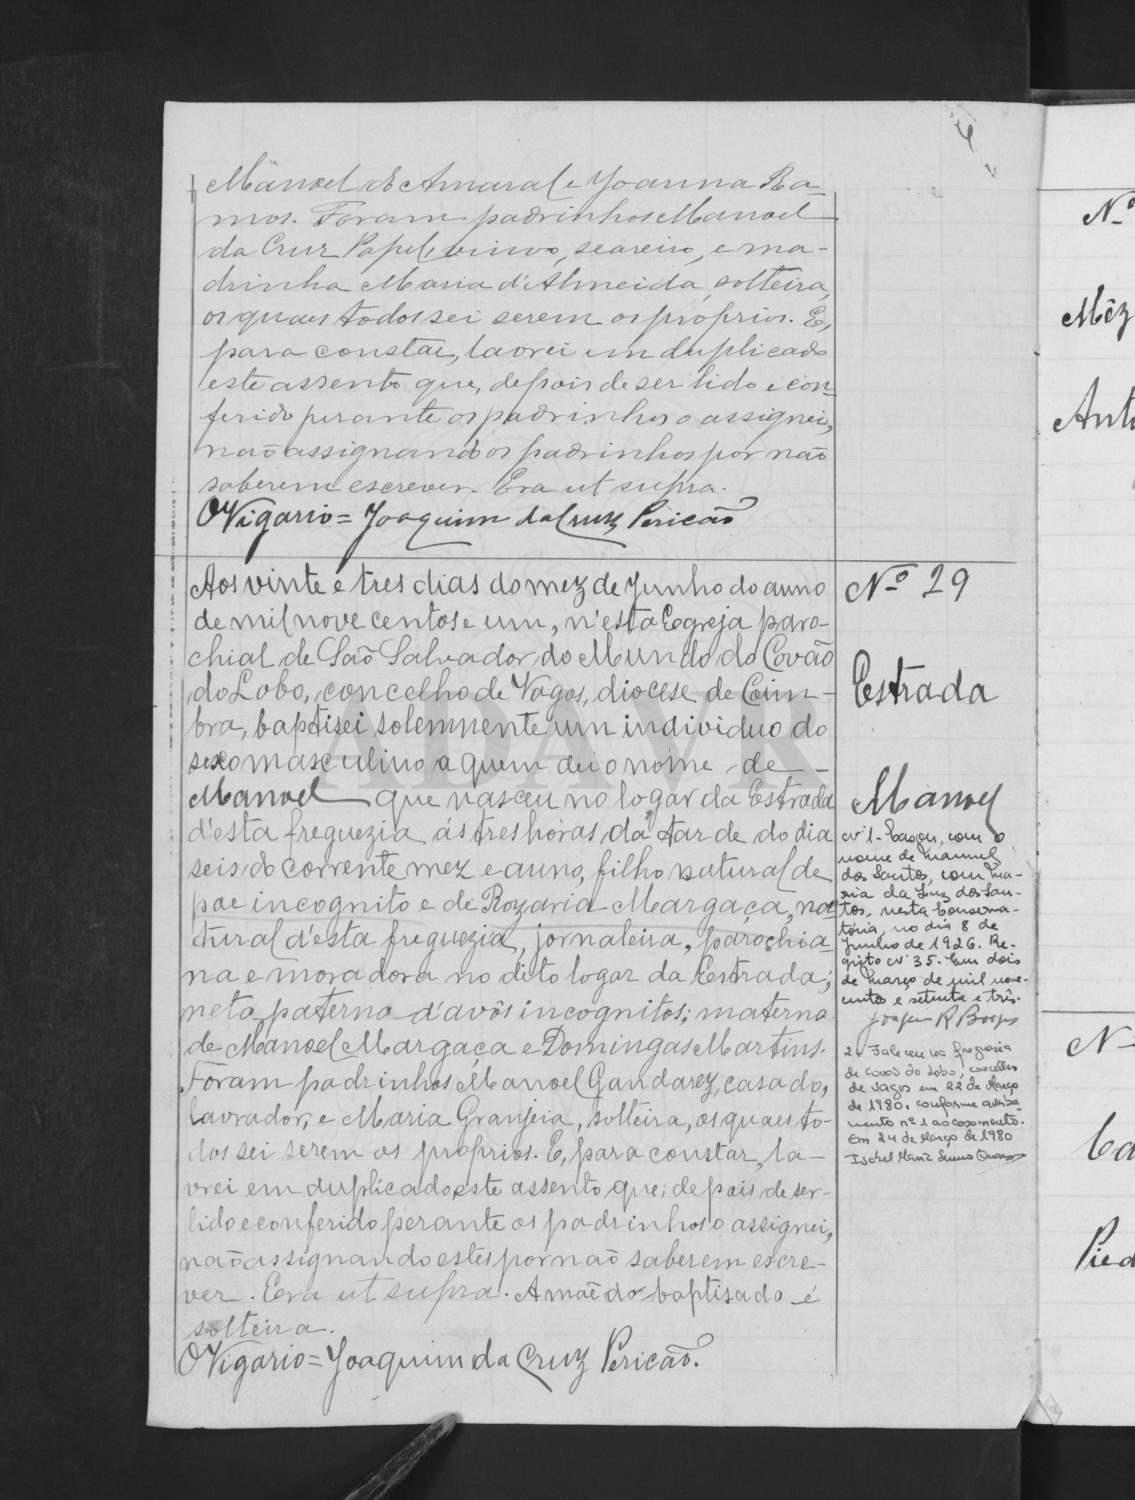 Manoel de Amaral e Joanna Ra-
mos. Foram padrinhos Manoel
da Cruz Papel, viuvo, seareiro, e ma-
drinha Maria d'Almeida, solteira,
os quaes todos sei serem os proprios. E,
para constar, lavrei em duplicado
este assento que, depois de ser lido e con-
ferido perante os padrinhos o assignei,
não assignando os padrinhos por não
saberem escrever. Era ut supra.
O Vigario = Joaquim da Cruz Pericão
Aos vinte e tres dias do mez de Junho do anno
de mil nove centos e um, n'esta Egreja paro-
chial de São Salvador do Mundo do Covão
do Lobo, concelho de Vagos, diocese de Coim-
bra, baptisei solemnente um individuo do
sexo masculino a quem dei o nome de
Manoel que nasceu no logar da Estrada
d'esta freguezia ás tres horas da tarde do dia
seis do corrente mez e anno, filho natural de
pae incognito e de Rozaria Margaça, na-
tural d'esta freguezia, jornaleira, parochia-
na e moradora no dito logar da Estrada;
neto paterno d'avôs incognitos; materno
de Manoel Margaça e Domingas Martins.
Foram padrinhos Manoel Gandarez, casado,
lavrador, e Maria Granjeia, solteira, os quaes to-
dos sei serem os proprios. E, para constar, la-
vrei em duplicado este assento que, depois de ser
lido e conferido perante os padrinhos o assignei,
não assignando estes por não saberem escre-
ver. Era ut supra. A mãe do baptisado é
solteira.
O Vigario = Joaquim da Cruz Pericão.
Nº 29
Estrada
Manoel
Nº 1 - Casou, com o
nome de Manuel
dos Santos, com Ma-
ria da Luz dos San-
tos, nesta Conserva-
tória, no dia 8 de
Junho de 1926. Re-
gisto nº 35. Em dois
de Março de mil nove-
centos e setenta e três.
Joaquim R
2- Faleceu na freguesia
de Covão do Lobo, concelho
de Vagos em 22 de Março
de 1980, conforme averba-
mento nº 1 ao casamento.
Em 24 de Março de 1980
Isabel Maria
ADAVR
Nº
Mez
Anto
Nº
Ca
Pied